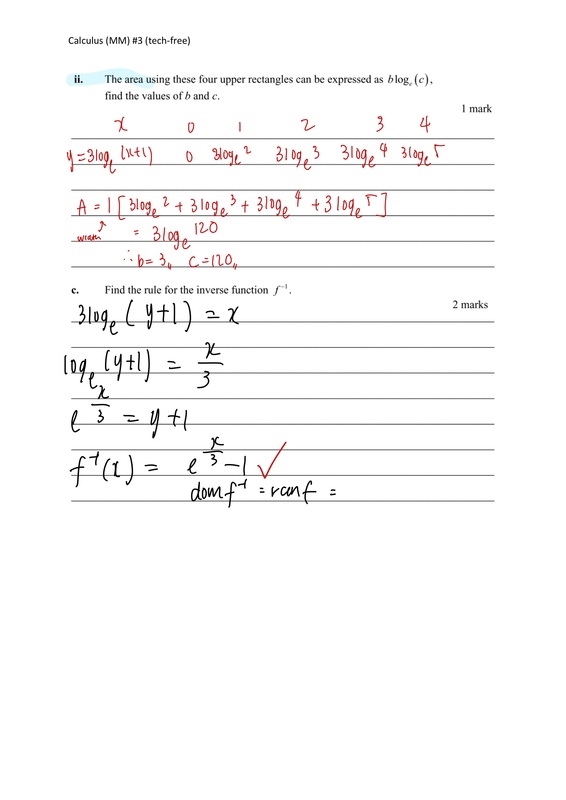 Calculus (MM) #3 (tech-free)
ii. The area using these four upper rectangles can be expressed as b logₑ(c),
find the values of b and c.
1 mark
x 0 1 2 3 4
y=3logₑ(x+1) 0 3logₑ2 3logₑ3 3logₑ4 3logₑ5
A = 1[3logₑ2 + 3logₑ3 + 3logₑ4 + 3logₑ5]
width = 3logₑ120
∴ b=3,, c=120,,
c. Find the rule for the inverse function f⁻¹.
2 marks
3logₑ(y+1) = x
logₑ(y+1) = x/3
e^(x/3) = y+1
f⁻¹(x) = e^(x/3) -1
domf⁻¹ = ranf =